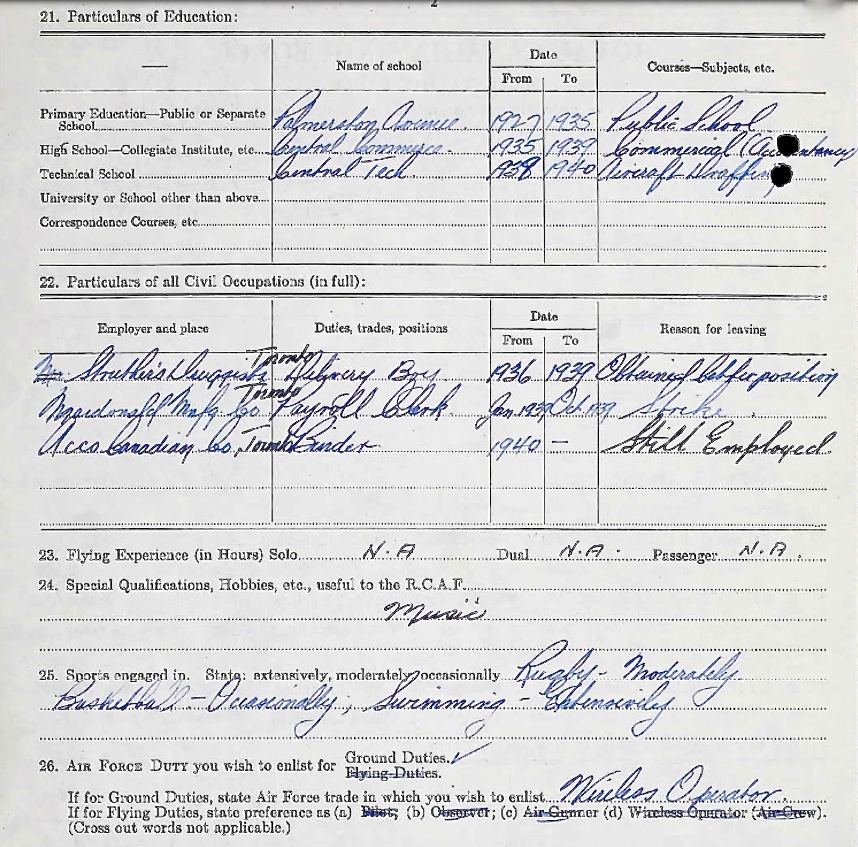 2
21. Particulars of Education:
— Name of school Date Courses—Subjects, etc.
From To
Primary Education—Public or Separate School Palmerston Avenue. 1927 1935 Public School
High School—Collegiate Institute, etc. Central Commerce. 1935 1939 Commercial (Accountancy)
Technical School Central Tech 1938 1940 Aircraft Drafting
University or School other than above
Correspondence Courses, etc.
22. Particulars of all Civil Occupations (in full):
Employer and place Duties, trades, positions Date Reason for leaving
From To
Struthers Druggists Toronto Delivery Boy 1936 1939 Obtained better position
Macdonald Mnfg. Co. Toronto Payroll Clerk. Jan. 1939 Oct 1939 Strike.
Acco Canadian Co, Toronto Binder 1940 — Still Employed.
23. Flying Experience (in Hours) Solo N.A Dual N.A. Passenger N.A.
24. Special Qualifications, Hobbies, etc., useful to the R.C.A.F.
Music
25. Sports engaged in. State: extensively, moderately, occasionally Rugby - Moderately
Basketball - Occasionally, Swimming - Extensively
26. AIR FORCE DUTY you wish to enlist for Ground Duties. ✓
Flying Duties.
If for Ground Duties, state Air Force trade in which you wish to enlist Wireless Operator.
If for Flying Duties, state preference as (a) Pilot; (b) Observer; (c) Air Gunner (d) Wireless Operator (Air Crew).
(Cross out words not applicable.)